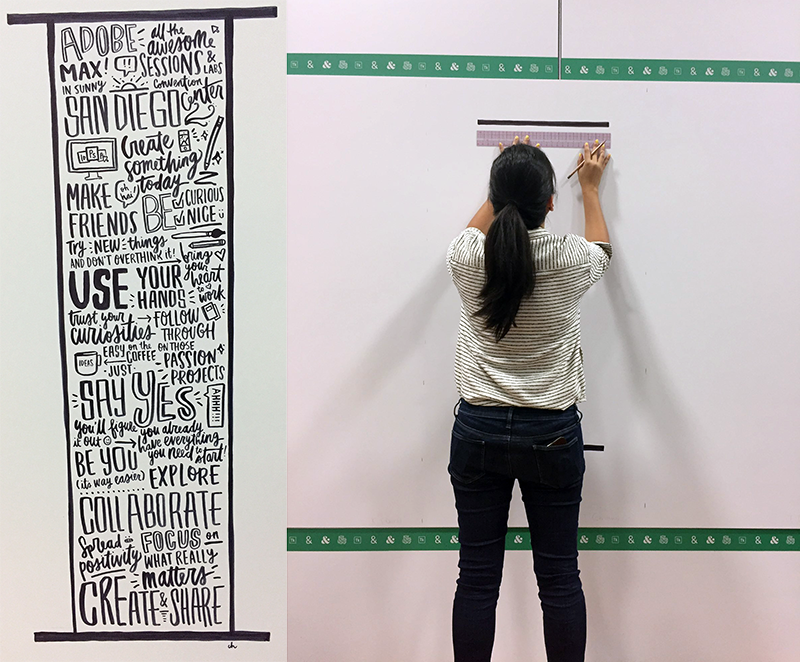 ADOBE all the
MAX! awesome
SESSIONS & LABS
IN SUNNY Convention
SAN DIEGO Center
Ps
Create
something
today
MAKE oh hai!
FRIENDS BE CURIOUS
NICE
Try NEW things
AND DON'T OVERTHINK IT! bring
your
heart
to
work
USE YOUR
HANDS
trust your → FOLLOW
curiosities THROUGH
ON THOSE
PASSION
PROJECTS
IDEAS EASY on the
← COFFEE
JUST
SAY YES AHHH!!!
you'll figure you already
it out → have everything
you need to start!
BE YOU
(its way easier) EXPLORE
COLLABORATE
Spread FOCUS on
positivity WHAT REALLY
matters
CREATE & SHARE
ch
& & & & & & &
& & & &